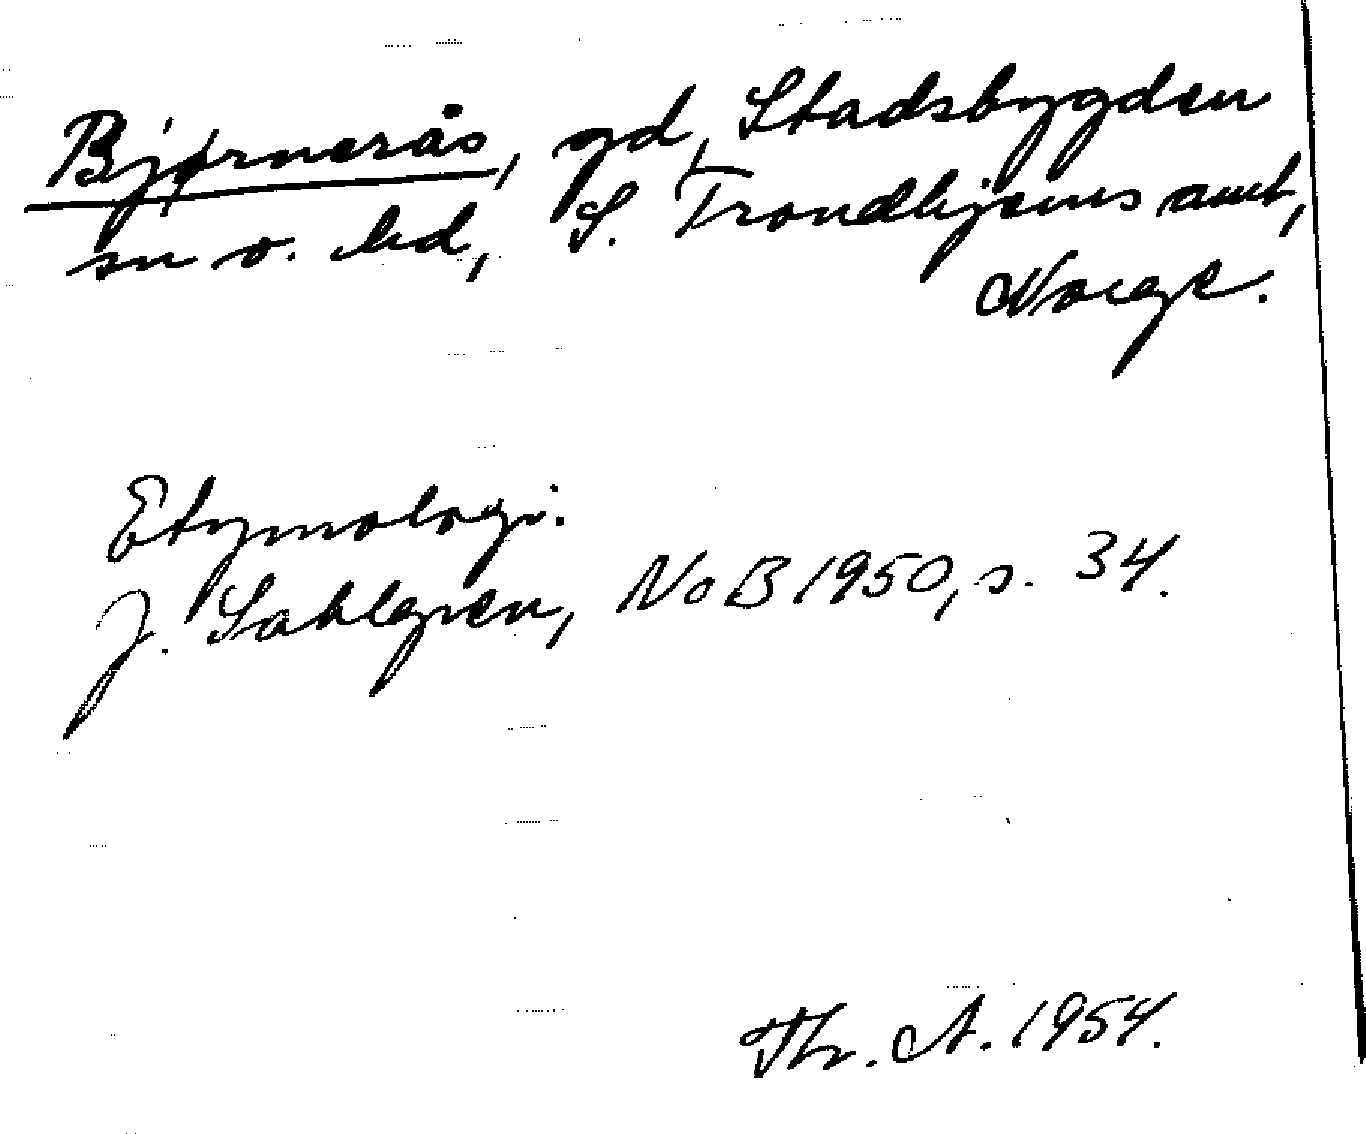 Bjørnerås, gd, Stadsbygden
sn o. hd, S. Trondhjems amt,
Norge.
Etymologi:
J. Sahlgren, NoB 1950, s. 34.
Thr. A. 1954.